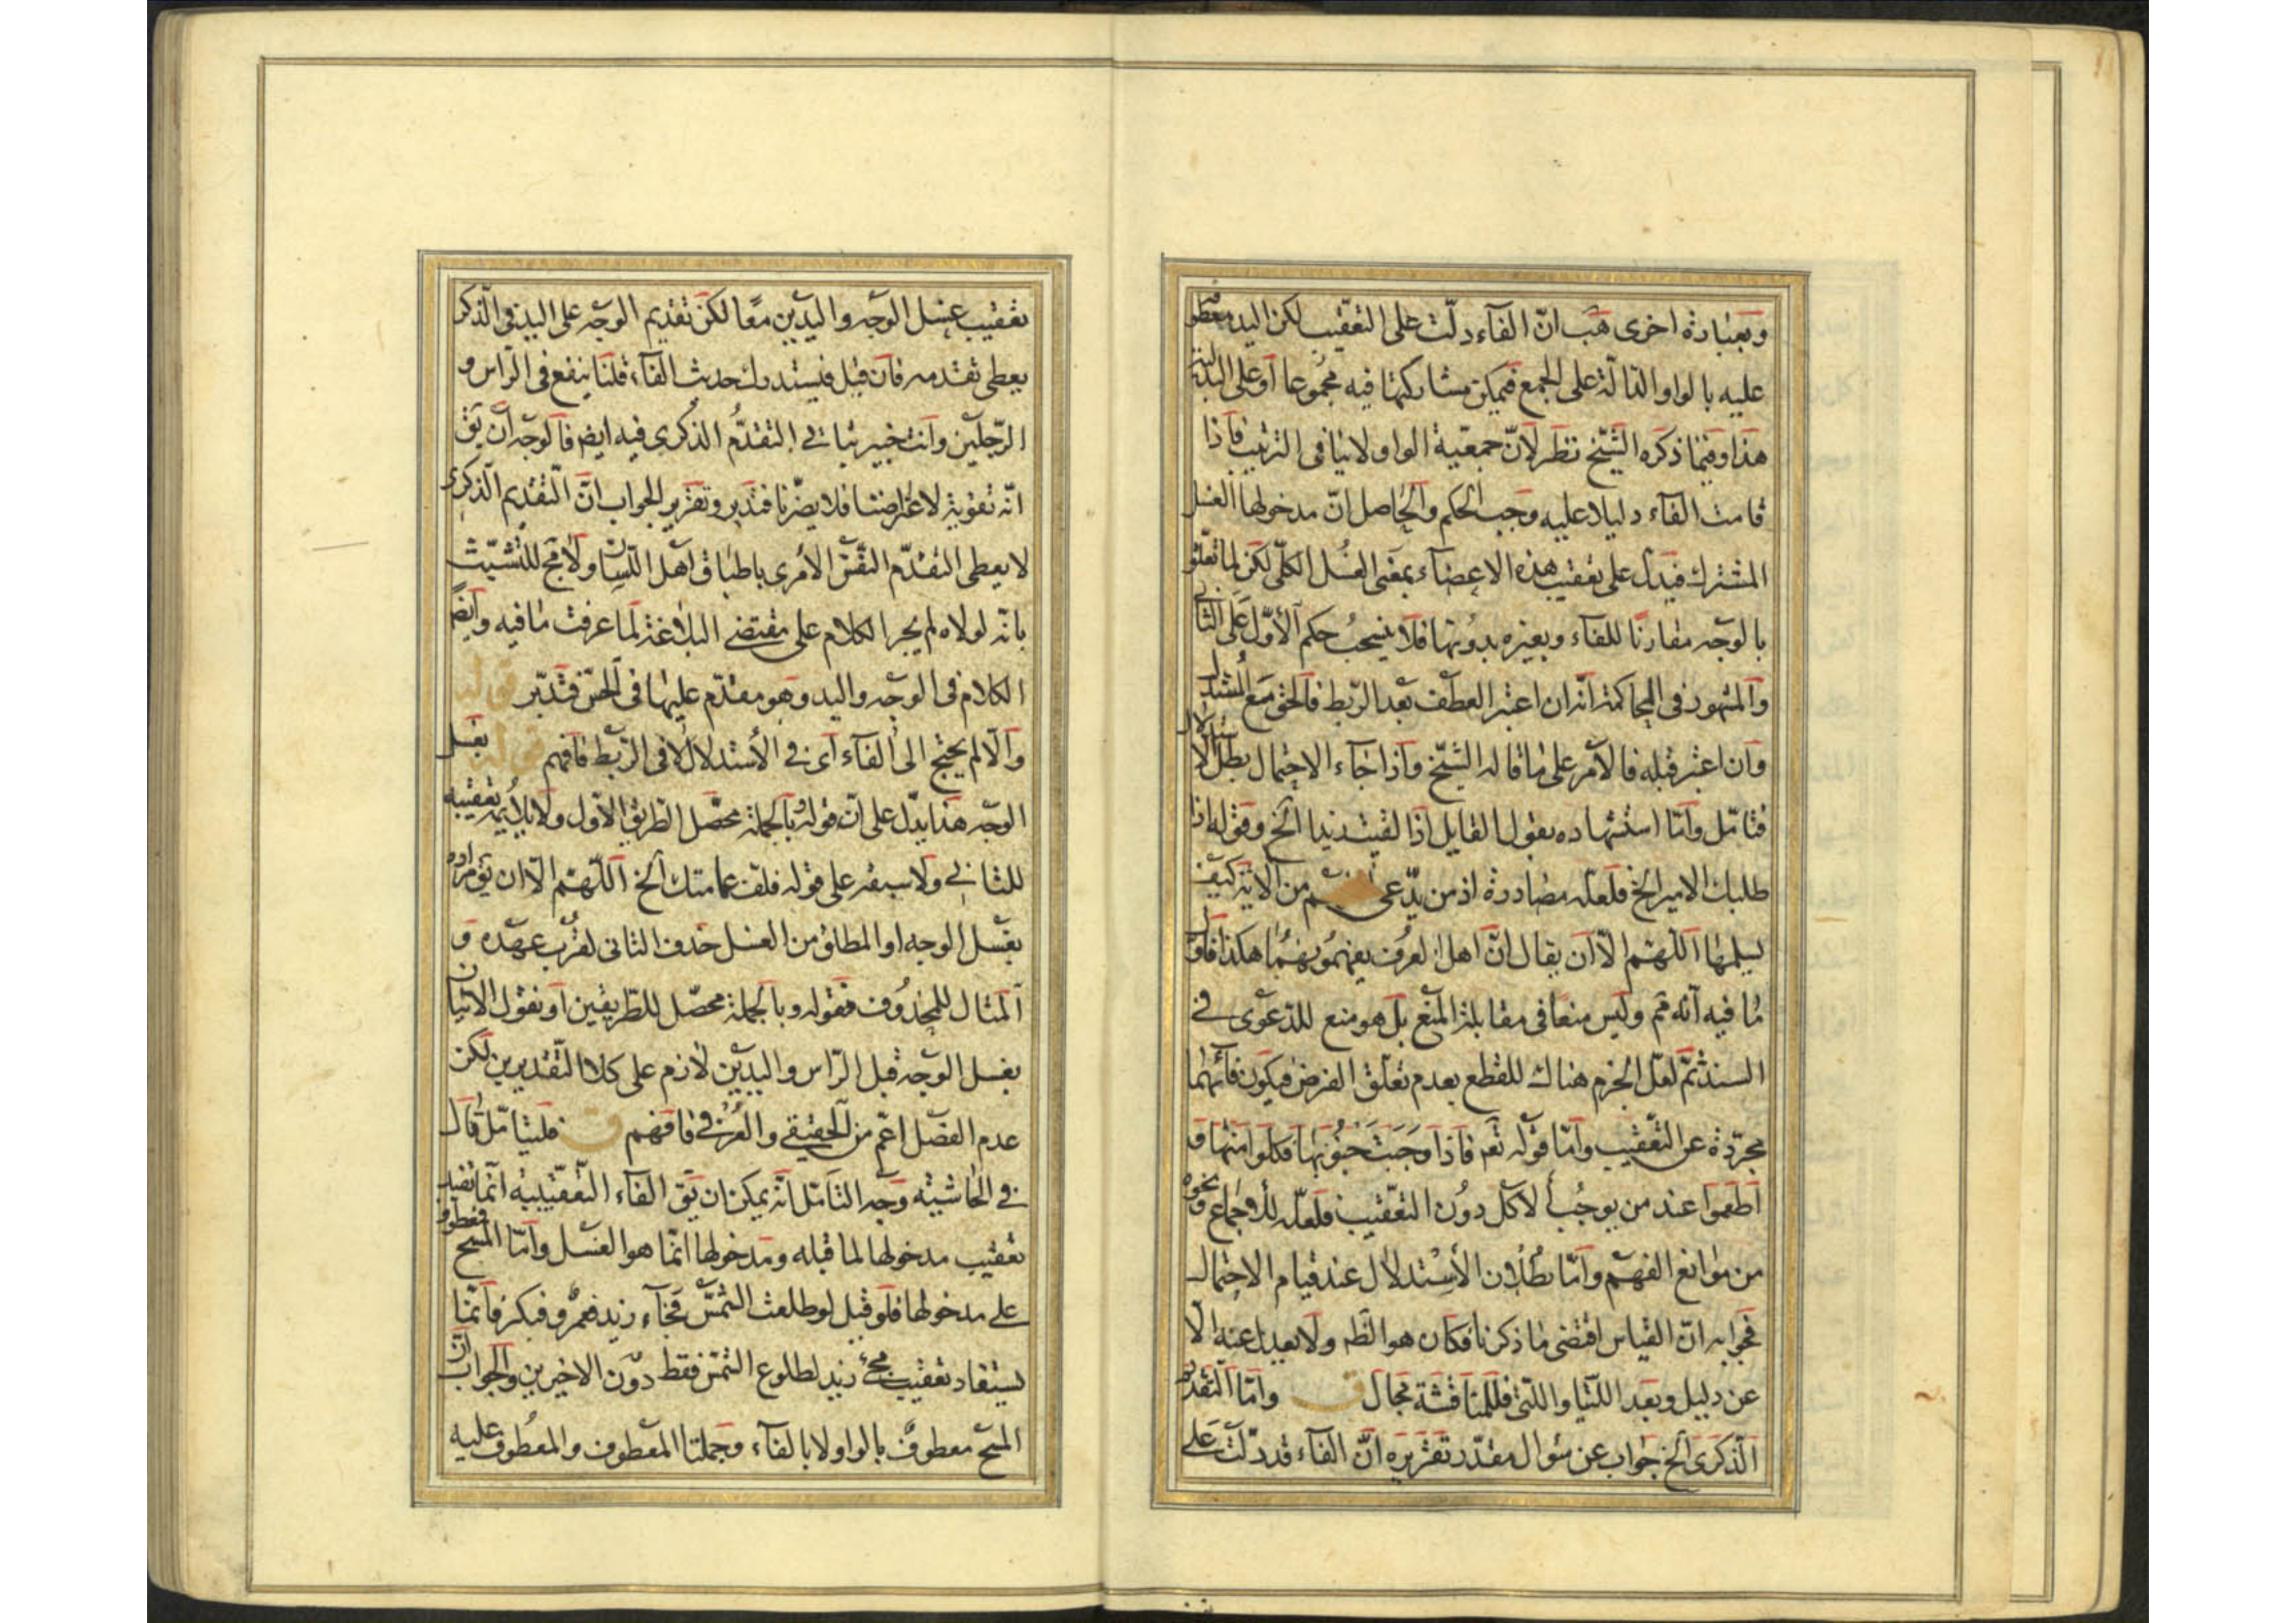 وبعبارة اخرى هب انّ الفاء دلّت على التعقيب لكن اليد معطوفة
عليه بالواو الدالة على الجمع فيمكن مشاركتها فيه مجموعا أو على البدلية
هذا وفيما ذكره الشيخ نظر لأنّ جمعية الواو لا ينافى الترتيب فاذا
قامت الفاء دليلا عليه وجب الحكم والحاصل انّ مدخولها الغسل
المشترك فيدل على تعقيب هذه الاعضاء بمعنى الغسل الكلّى لكن لما تعلّق
بالوجه مقارنًا للفاء وبغيره بدونها فلا ينسحب حكم الأوّل على الثانى
والمشهور فى المحاكمة انّه ان اعتبر العطف بعد الربط فالحق مع المستدل
وان اعتبر قبله فالأمر على ما قاله الشيخ واذا جاء الاحتمال بطل الاستدلال
فتامّل وأمّا استشهاده بقول القايل اذا لقيت زيدا الخ وقوله اذا
طلبك الامير الخ فلعلّه مصادرة اذ من يدّعى من الآية كيف
يسلمها اللّهمّ الّا ان يقال انّ اهل العرف يفهمونهما هكذا فاوّل
ما فيه أنّه ثم وليس منعًا فى مقابلة المنع بل هو منع للدّعوى فى
السند ثمّ لعلّ الجزم هناك للقطع بعدم تعلّق الغرض فيكون فائهما
مجرّدة عن التّعقيب وأمّا قوله تعم فاذا وجبت جنوبها فكلوا منها و
أطعموا عند من يوجب الأكل دون التعقيب فلعلّه للاجماع ونحوه
من موانع الفهم وأمّا بطلان الأستدلال عند قيام الاحتمال
فجوابه انّ القياس اقتضى ما ذكرنا فكان هو الظم ولا يعدل عنه الّا
عن دليل وبعد اللّتيا واللّتى فللمناقشة مجال ق وأمّا التقدّم
الذكرى الخ جواب عن سؤال مقدّر تقريره انّ الفاء قد دلّت على
تعقيب غسل الوجه واليدين معًا لكن تقديم الوجه على اليد فى الذكر
يعطى تقدمه فان قيل فيستدرك حدث الفاء قلنا ينفع فى الرّاس و
الرّجلين وانت خبير بتاتى التقدّم الذكرى فيه ايضا فالوجه أن يق
انّه تقوية لاعتراضنا فلا يضرّنا فتدبر وتقرير الجواب انّ التقديم الذكرى
لا يعطى التقدّم النّفس الأمرى باطباق اهل اللّسان ولا مج للتشبّث
بانّه لولاه لم يجر الكلام على مقتضى البلاغة لما عرفت ما فيه وأيضًا
الكلام فى الوجه واليد وهو مقدّم عليها فى الحسّ فتدبّر قوله
والّا لم يحتج الى الفاء أى فى الأستدلال لا فى الرّبط فافهم قوله بغسل
الوجه هذا يدلّ على انّ قوله بالجملة محصّل الطّريق الأوّل ولا يلايمه تعقيبه
للثانى ولا سبقه على قوله الخ اللّهمّ الّا ان يق مراده
بغسل الوجه او المطلق من الغسل حذف الثانى لقرب عهده و
المثال للمحذوف فقوله وبالجملة محصّل للطّريقين أو نقول الاتيان
بغسل الوجه قبل الرّاس واليدين لازم على كلا التّقديرين لكن
عدم الفصل اعمّ من الحقيقى والعرفى فافهم ق فليتأمّل قال
فى الحاشية وجه التأمّل انّه يمكن ان يق الفاء التّعقيبيّة انّما تفيد
تعقيب مدخولها لما قبله ومدخولها انّما هو الغسل وأمّا المسح فمعطوف
على مدخولها فلو قيل لو طلعت الشّمس فجاء زيد فعمرو فبكر فانّما
يستفاد تعقيب مجئ زيد لطلوع الشّمس فقط دون الاخيرين والجواب أنّ
المسح معطوف بالواو لا بالفاء وجملتا المعطوف والمعطوف عليه